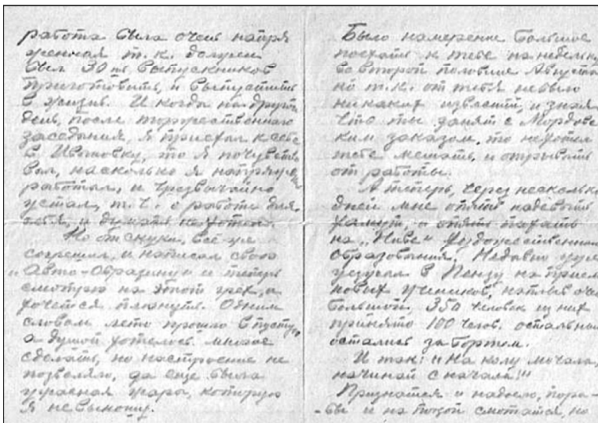 работа была очень напря
женная т.к. должен
был 30 ть выпускников
приготовить, и выпустить
в жизнь. И когда на другой
день, после торжественного
заседания, я приехал к себе
в Ивановку, то я почувство
вал, насколько я напряженно
работал, и чрезвычайно
устал, т.ч. о работе для
себя, и думать не хотел.
Но от скуки, всё же
согрешил, и написал свою
"Авто-Образину" и теперь
смотрю на этот грех, и
хочется плюнуть. Одним
словом лето прошло впустую,
а душой хотелось многое
сделать, но настроение не
позволяло, да еще была
ужасная жара, которую
я не выношу.
Было намерение большое
поехать к тебе на недельку
во второй половине Августа
но т.к. от тебя не было
никаких известий, и зная
что ты занят с Мордовс
ким заказом, то не хотел
тебе мешать, и отрывать
от работы.
А теперь, через несколько
дней мне опять надевать
хомут, и опять пахать
на "Ниве" Художественного
образования. Недавно уже
ездил в Пензу на прием
новых учеников, наплыв очень
большой. 350 человек из них
принято 100 челов. остальные
остались за бортом.
И так! "На колу мочала,
начинай с начала!"
Признаться и надоело, пора-
-бы и на покой смотаться, но